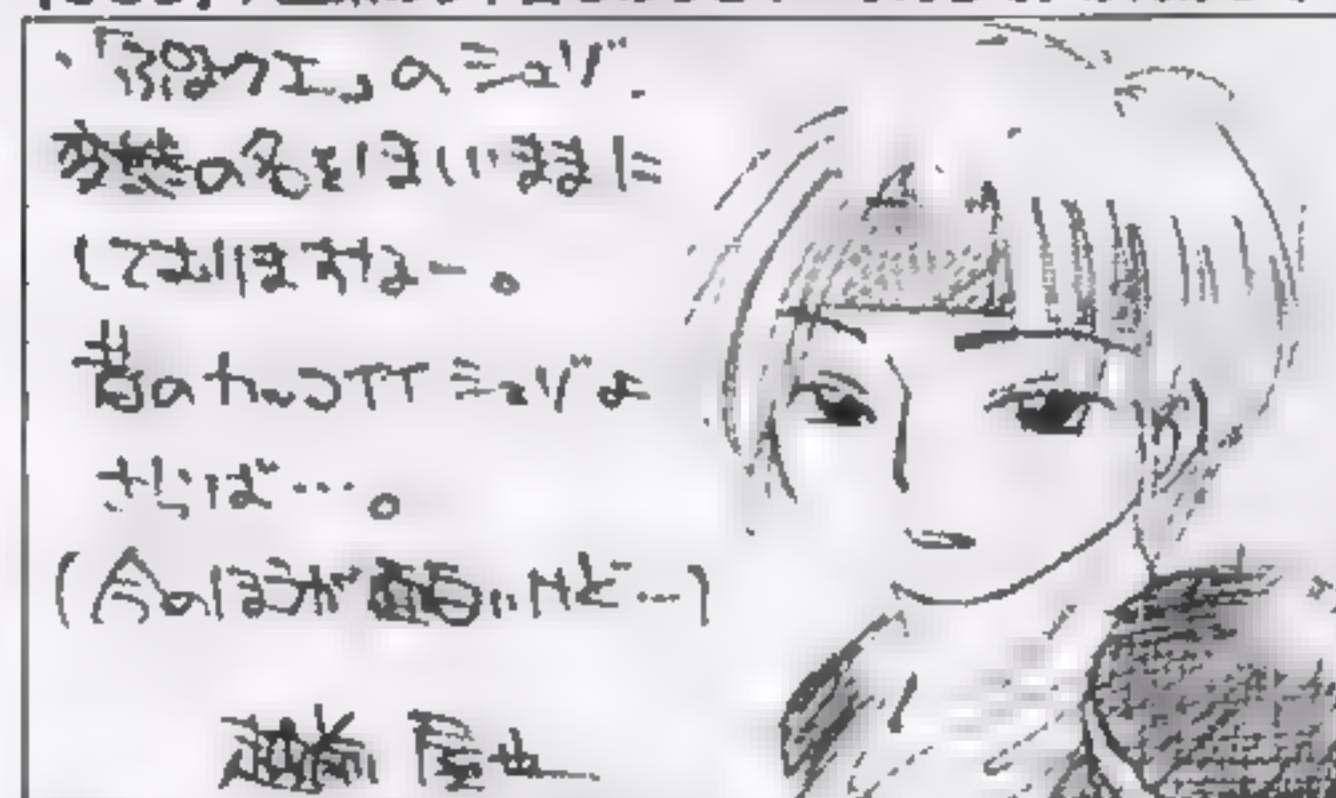 ・「ぷよクエ」のシェゾ.
変態の名をほしいままに
しておりますなー。
昔のカッコイイシェゾよ
さらば…。
(今のほうが面白いけど…)